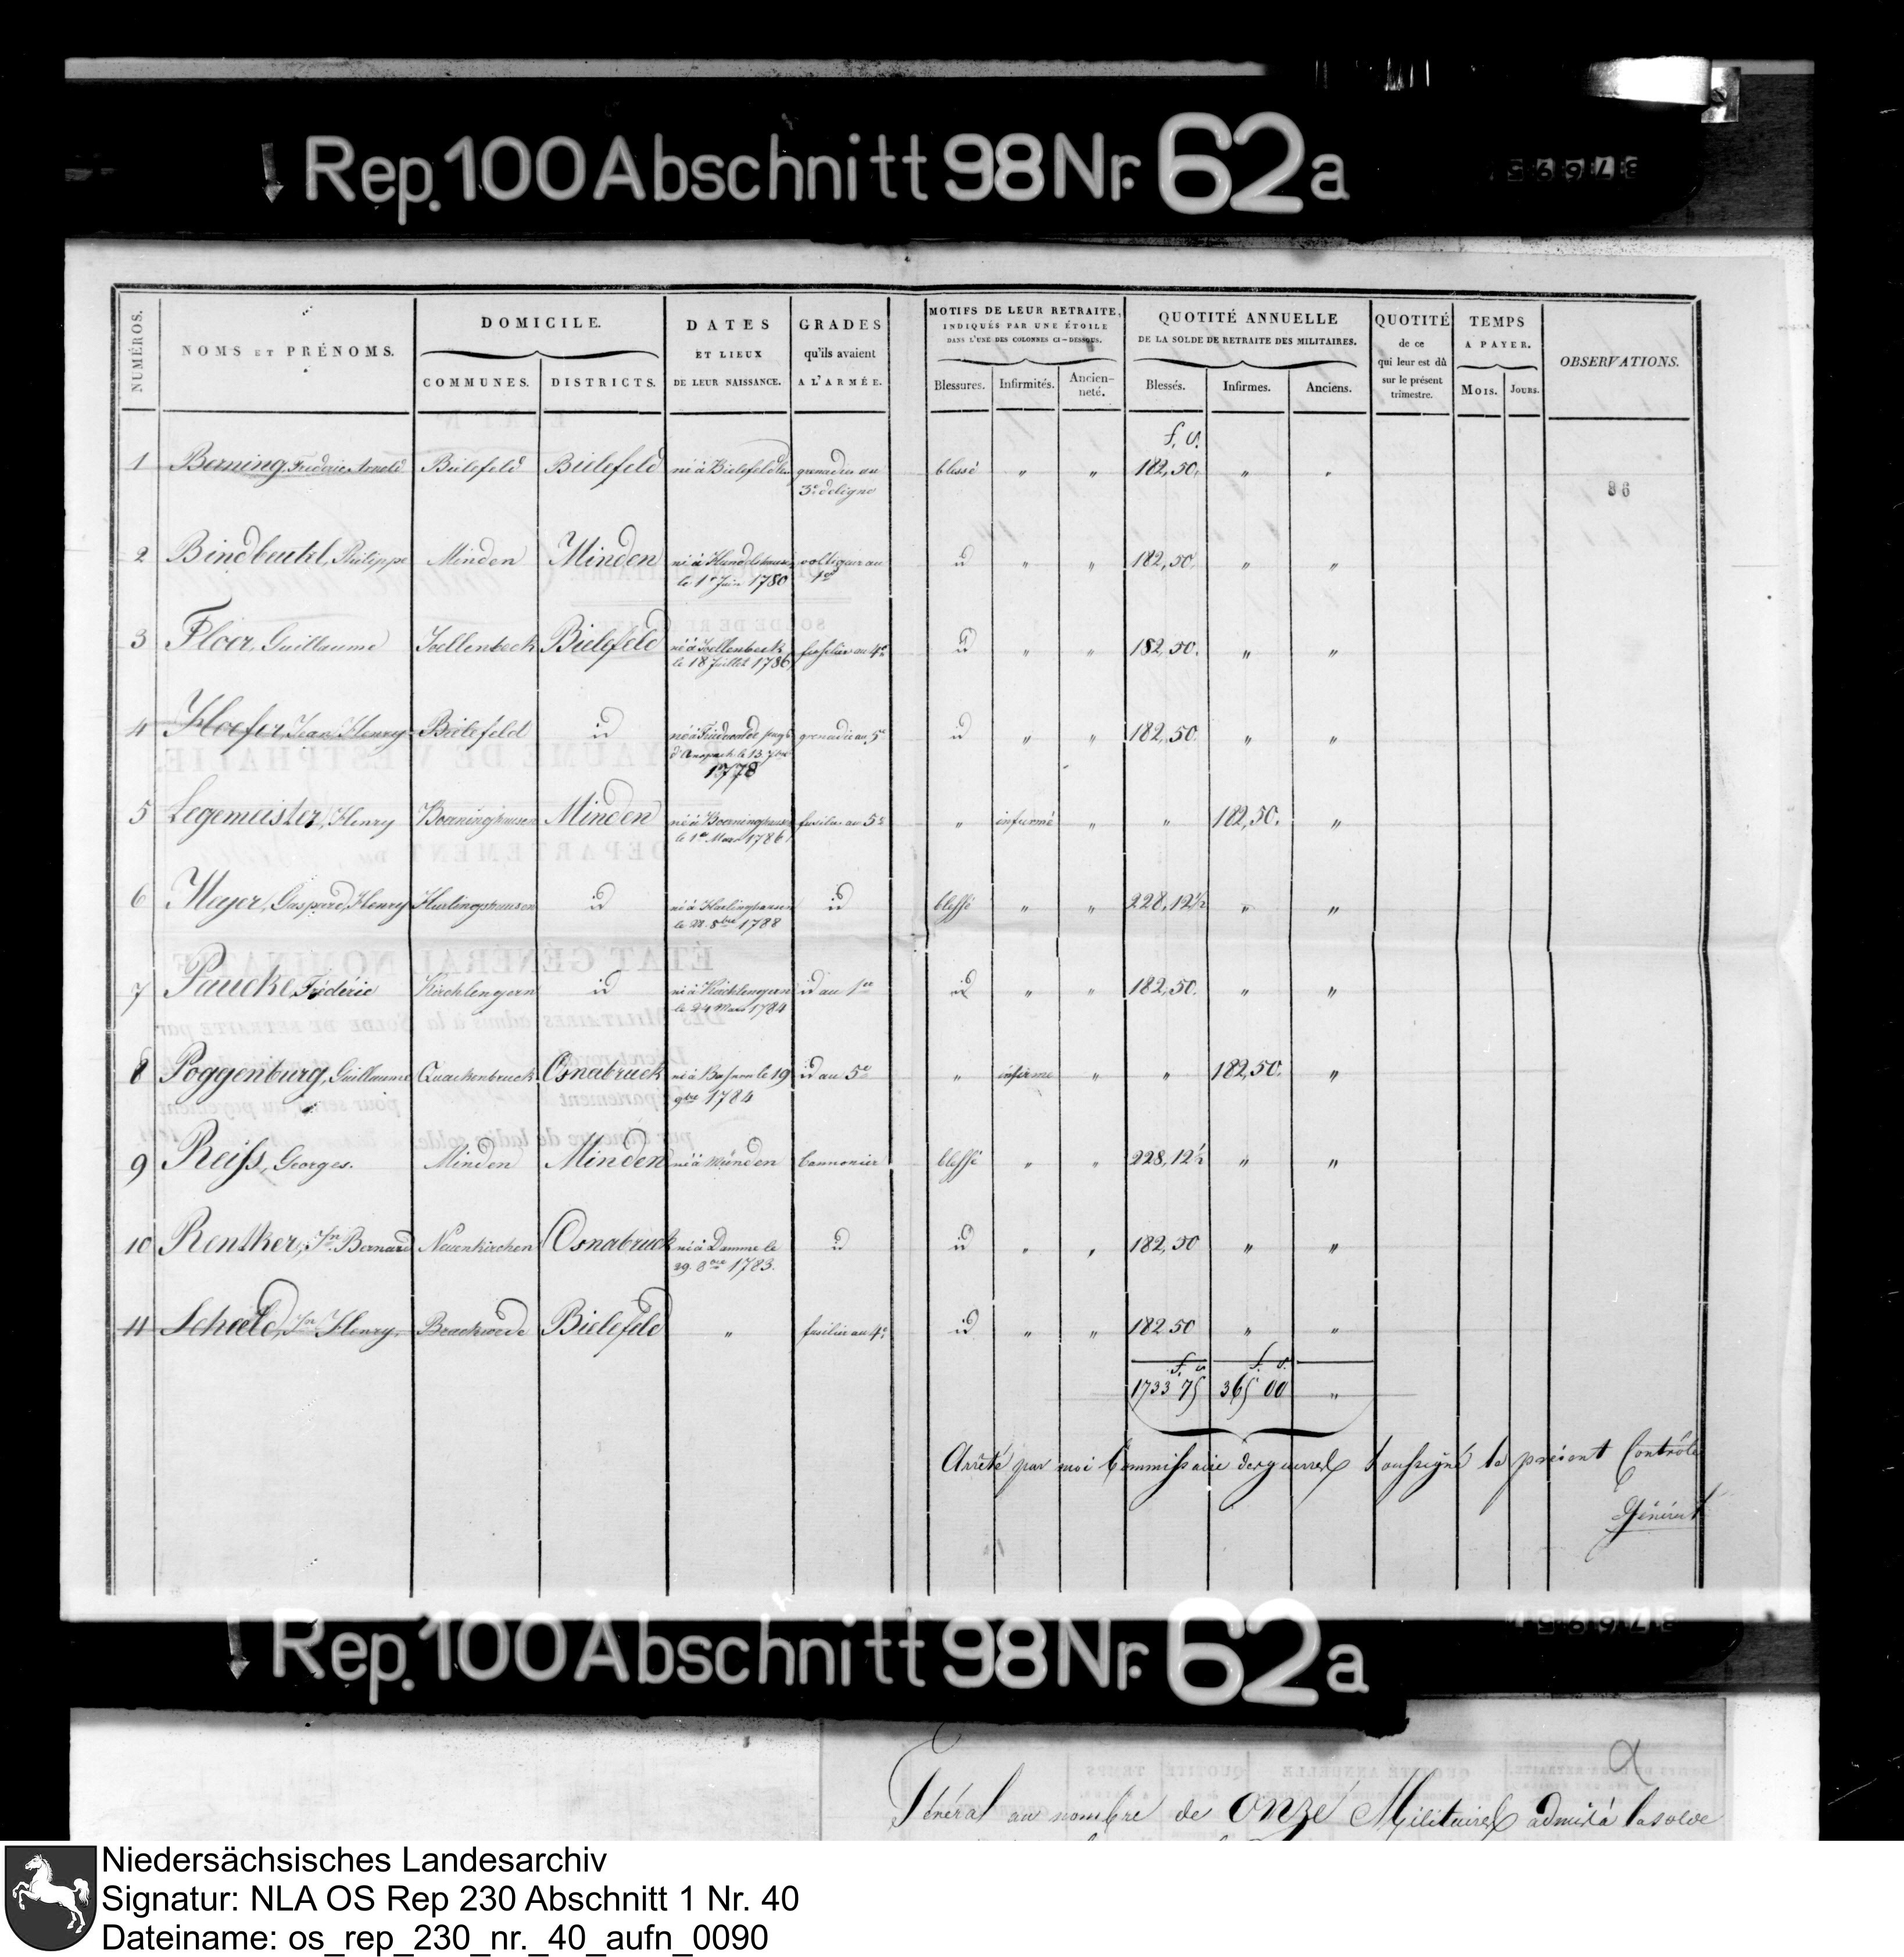 Rep. 100 Abschnitt 98 Nr. 62a
37695
NUMÉROS.
NOMS ET PRÉNOMS.
DOMICILE.
COMMUNES. DISTRICTS.
DATES
ET LIEUX
DE LEUR NAISSANCE.
GRADES
qu'ils avaient
A L'ARMÉE.
MOTIFS DE LEUR RETRAITE,
INDIQUÉS PAR UNE ÉTOILE
DANS L'UNE DES COLONNES CI-DESSOUS.
Blessures. Infirmités. Ancien-
neté.
QUOTITÉ ANNUELLE
DE LA SOLDE DE RETRAITE DES MILITAIRES.
Blessés. Infirmes. Anciens.
QUOTITÉ
de ce
qui leur est dû
sur le présent
trimestre.
TEMPS
A PAYER.
MOIS. JOURS.
OBSERVATIONS.
f. s.
1 Berning, Frederic Arnold Bielefeld Bielefeld né à Bielefeld grenadier au blessé " " 182,50. " "
3e de ligne
86
2 Bindbeutel, Philippe Minden Minden né à voltigeur au id " " 182,50. " "
le 1er Juin 1780 1er
3 Floer, Guillaume Joellenbeck Bielefeld né à Joellenbeck fusilier au 4e id " " 182,50. " "
le 18 Juillet 1786
4 Hoefer, Jean Henry Bielefeld id né à Friedewalde grenadier au 5e id " " 182,50. " "
d'Anspach le 13
1778
5 Legemeister, Henry Boeninghausen Minden né à Boeninghausen fusilier au 5e " infirmé " " 182,50. "
le 1er Mars 1786
6 Meyer, Gaspard Henry Huelinghausen id né à Huelinghausen id blessé " " 228,12½ " "
le 28. 8bre 1788
7 Paucke, Fréderic Kirchlengern id né à Kirchlengern id au 1er id " " 182,50. " "
le 24 Mars 1784
8 Poggenburg, Guillaume Quackenbruck Osnabruck né à le 19 id au 5e " infirme " " 182,50. "
9bre 1784
9 Reiss, Georges. Minden Minden né à Münden Cannonier blessé " " 228,12½ " "
10 Rentker, Jn Bernard Neuenkirchen Osnabruck né à Damme le id id " " 182,50 " "
29. 8bre 1783.
11 Scheeld, Jn Henry. Brackwede Bielefeld " fusilier au 4e id " " 182 50 " "
f. s. f. s.
1733 75 365 00 "
Arrêté par moi Commissaire des guerres soussigné le présent Contrôle
Général
Rep. 100 Abschnitt 98 Nr. 62a
37695
a
Général au nombre de onze Militaires admis à la solde
Niedersächsisches Landesarchiv
Signatur: NLA OS Rep 230 Abschnitt 1 Nr. 40
Dateiname: os_rep_230_nr._40_aufn_0090